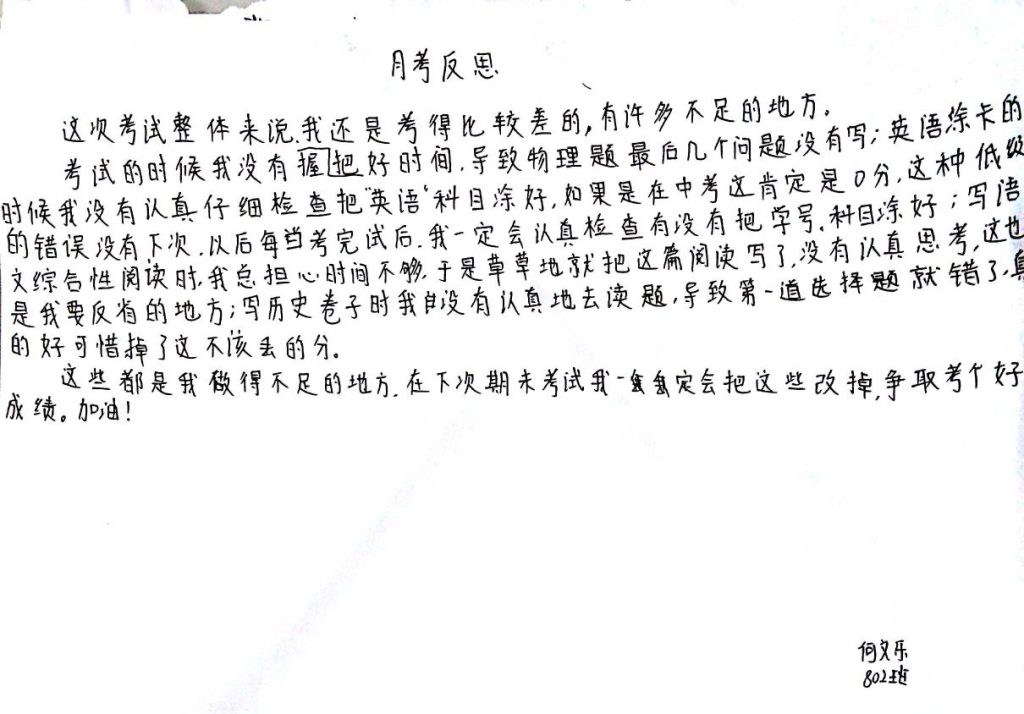 月考反思
这次考试整体来说,我还是考得比较差的,有许多不足的地方。
考试的时候我没有握把好时间,导致物理题最后几个问题没有写;英语涂卡的
时候我没有认真仔细检查把“英语”科目涂好,如果是在中考这肯定是0分,这种低级
的错误没有下次,以后每当考完试后,我一定会认真检查有没有把学号,科目涂好;写语
文综合性阅读时,我总担心时间不够,于是草草地就把这篇阅读写了,没有认真思考,这也
是我要反省的地方;写历史卷子时我没有认真地去读题,导致第一道选择题就错了,真
的好可惜掉了这不该丢的分。
这些都是我做得不足的地方,在下次期末考试我一定会把这些改掉,争取考个好
成绩。加油!
何文乐
802班